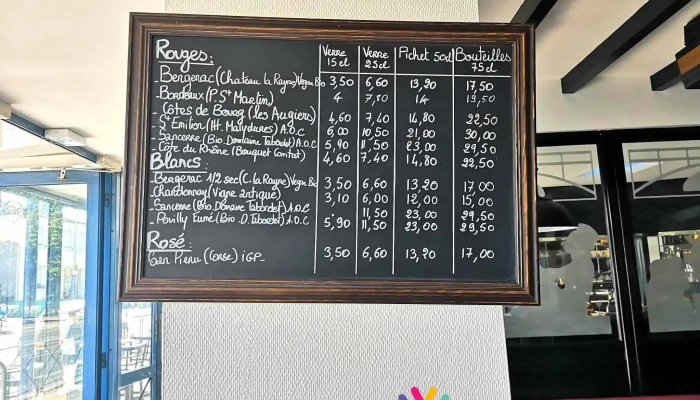 Rouges: Verre 15cl Verre 25cl Pichet 50cl Bouteilles 75cl
- Bergerac (Chateau la Rayre) Vegan Bio 3,50 6,60 13,20 17,50
- Bordeaux (P. St Martin) 4 7,80 14 19,50
- Côtes de Bourg (les Augiers) 4,60 7,40 14,80 22,50
- St Emilion (Ht. Malydures) A.O.C 6,00 10,50 21,00 30,00
- Sancerre (Bio. Domaine Tabordet) A.O.C 5,90 11,50 23,00 29,50
- Côte du Rhône (Bouquet Cantat) 4,60 7,40 14,80 22,50
Blancs:
- Bergerac 1/2 sec (C. la Rayre) Vegan Bio 3,50 6,60 13,20 17,00
- Chardonnay (Vigne antique) 3,10 6,00 12,00 15,00
- Sancerre (Bio. Domaine Tabordet) A.O.C 11,50 23,00 29,50
- Pouilly Fumé (Bio. D. Tabordet) A.O.C 5,90 11,50 23,00 29,50
Rosé:
(Corse) IGP 3,50 6,60 13,20 17,00